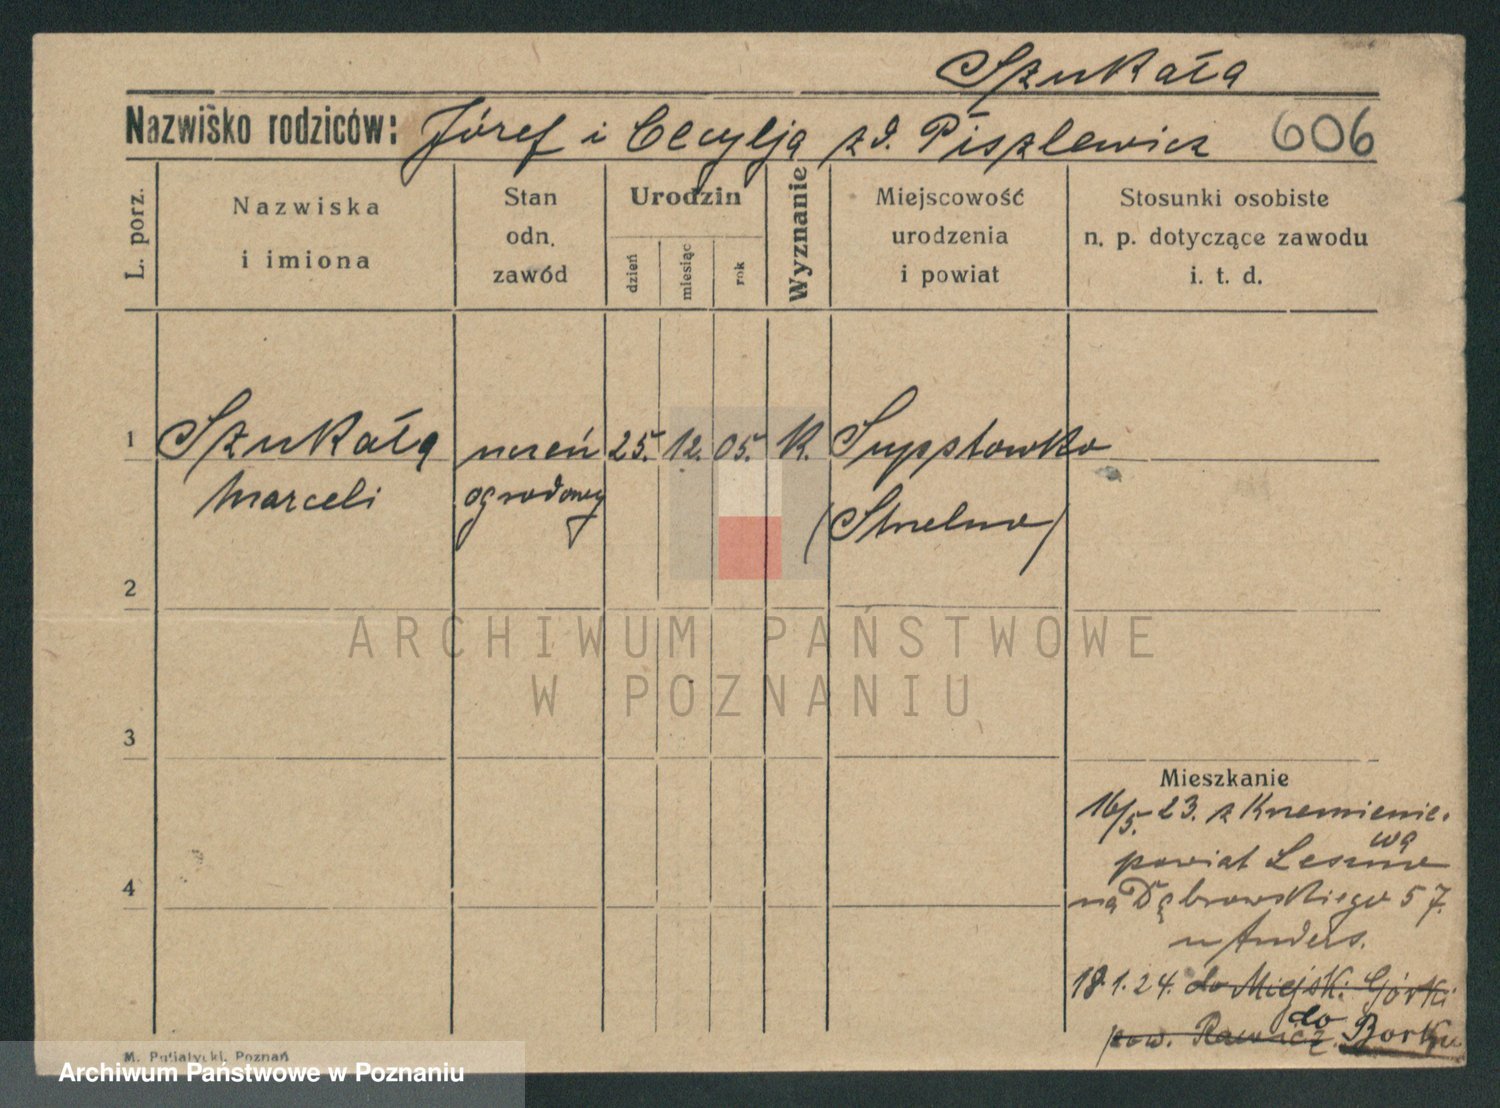 Szukała
Nazwisko rodziców: Józef i Cecylja zd. Piszlewicz 606
L. porz.
Nazwiska
i imiona
Stan
odn.
zawód
Urodzin
dzień
miesiąc
rok
Wyznanie
Miejscowość
urodzenia
i powiat
Stosunki osobiste
n. p. dotyczące zawodu
i. t. d.
1 Szukała uczeń 25. 12. 05. K.
Marceli ogrodowy (Strzelno)
2
3
4
Mieszkanie
16/5. 23. z Krzemienie.
wa
powiat Leszno
na Dąbrowskiego 57.
u Anders.
18.1.24. do Miejsk. Górki
pow. Rawicz. do Borku
M. Putiatycki, Poznań
ARCHIWUM PAŃSTWOWE
W POZNANIU
Archiwum Państwowe w Poznaniu